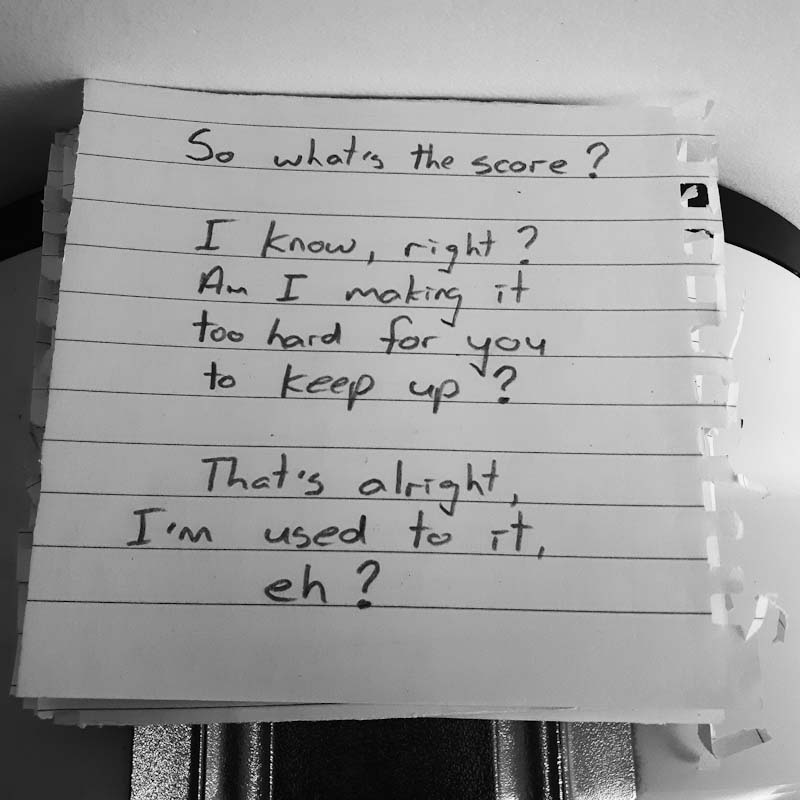 So what's the score?
I know, right?
Am I making it
too hard for you
to keep up?
That's alright,
I'm used to it,
eh?